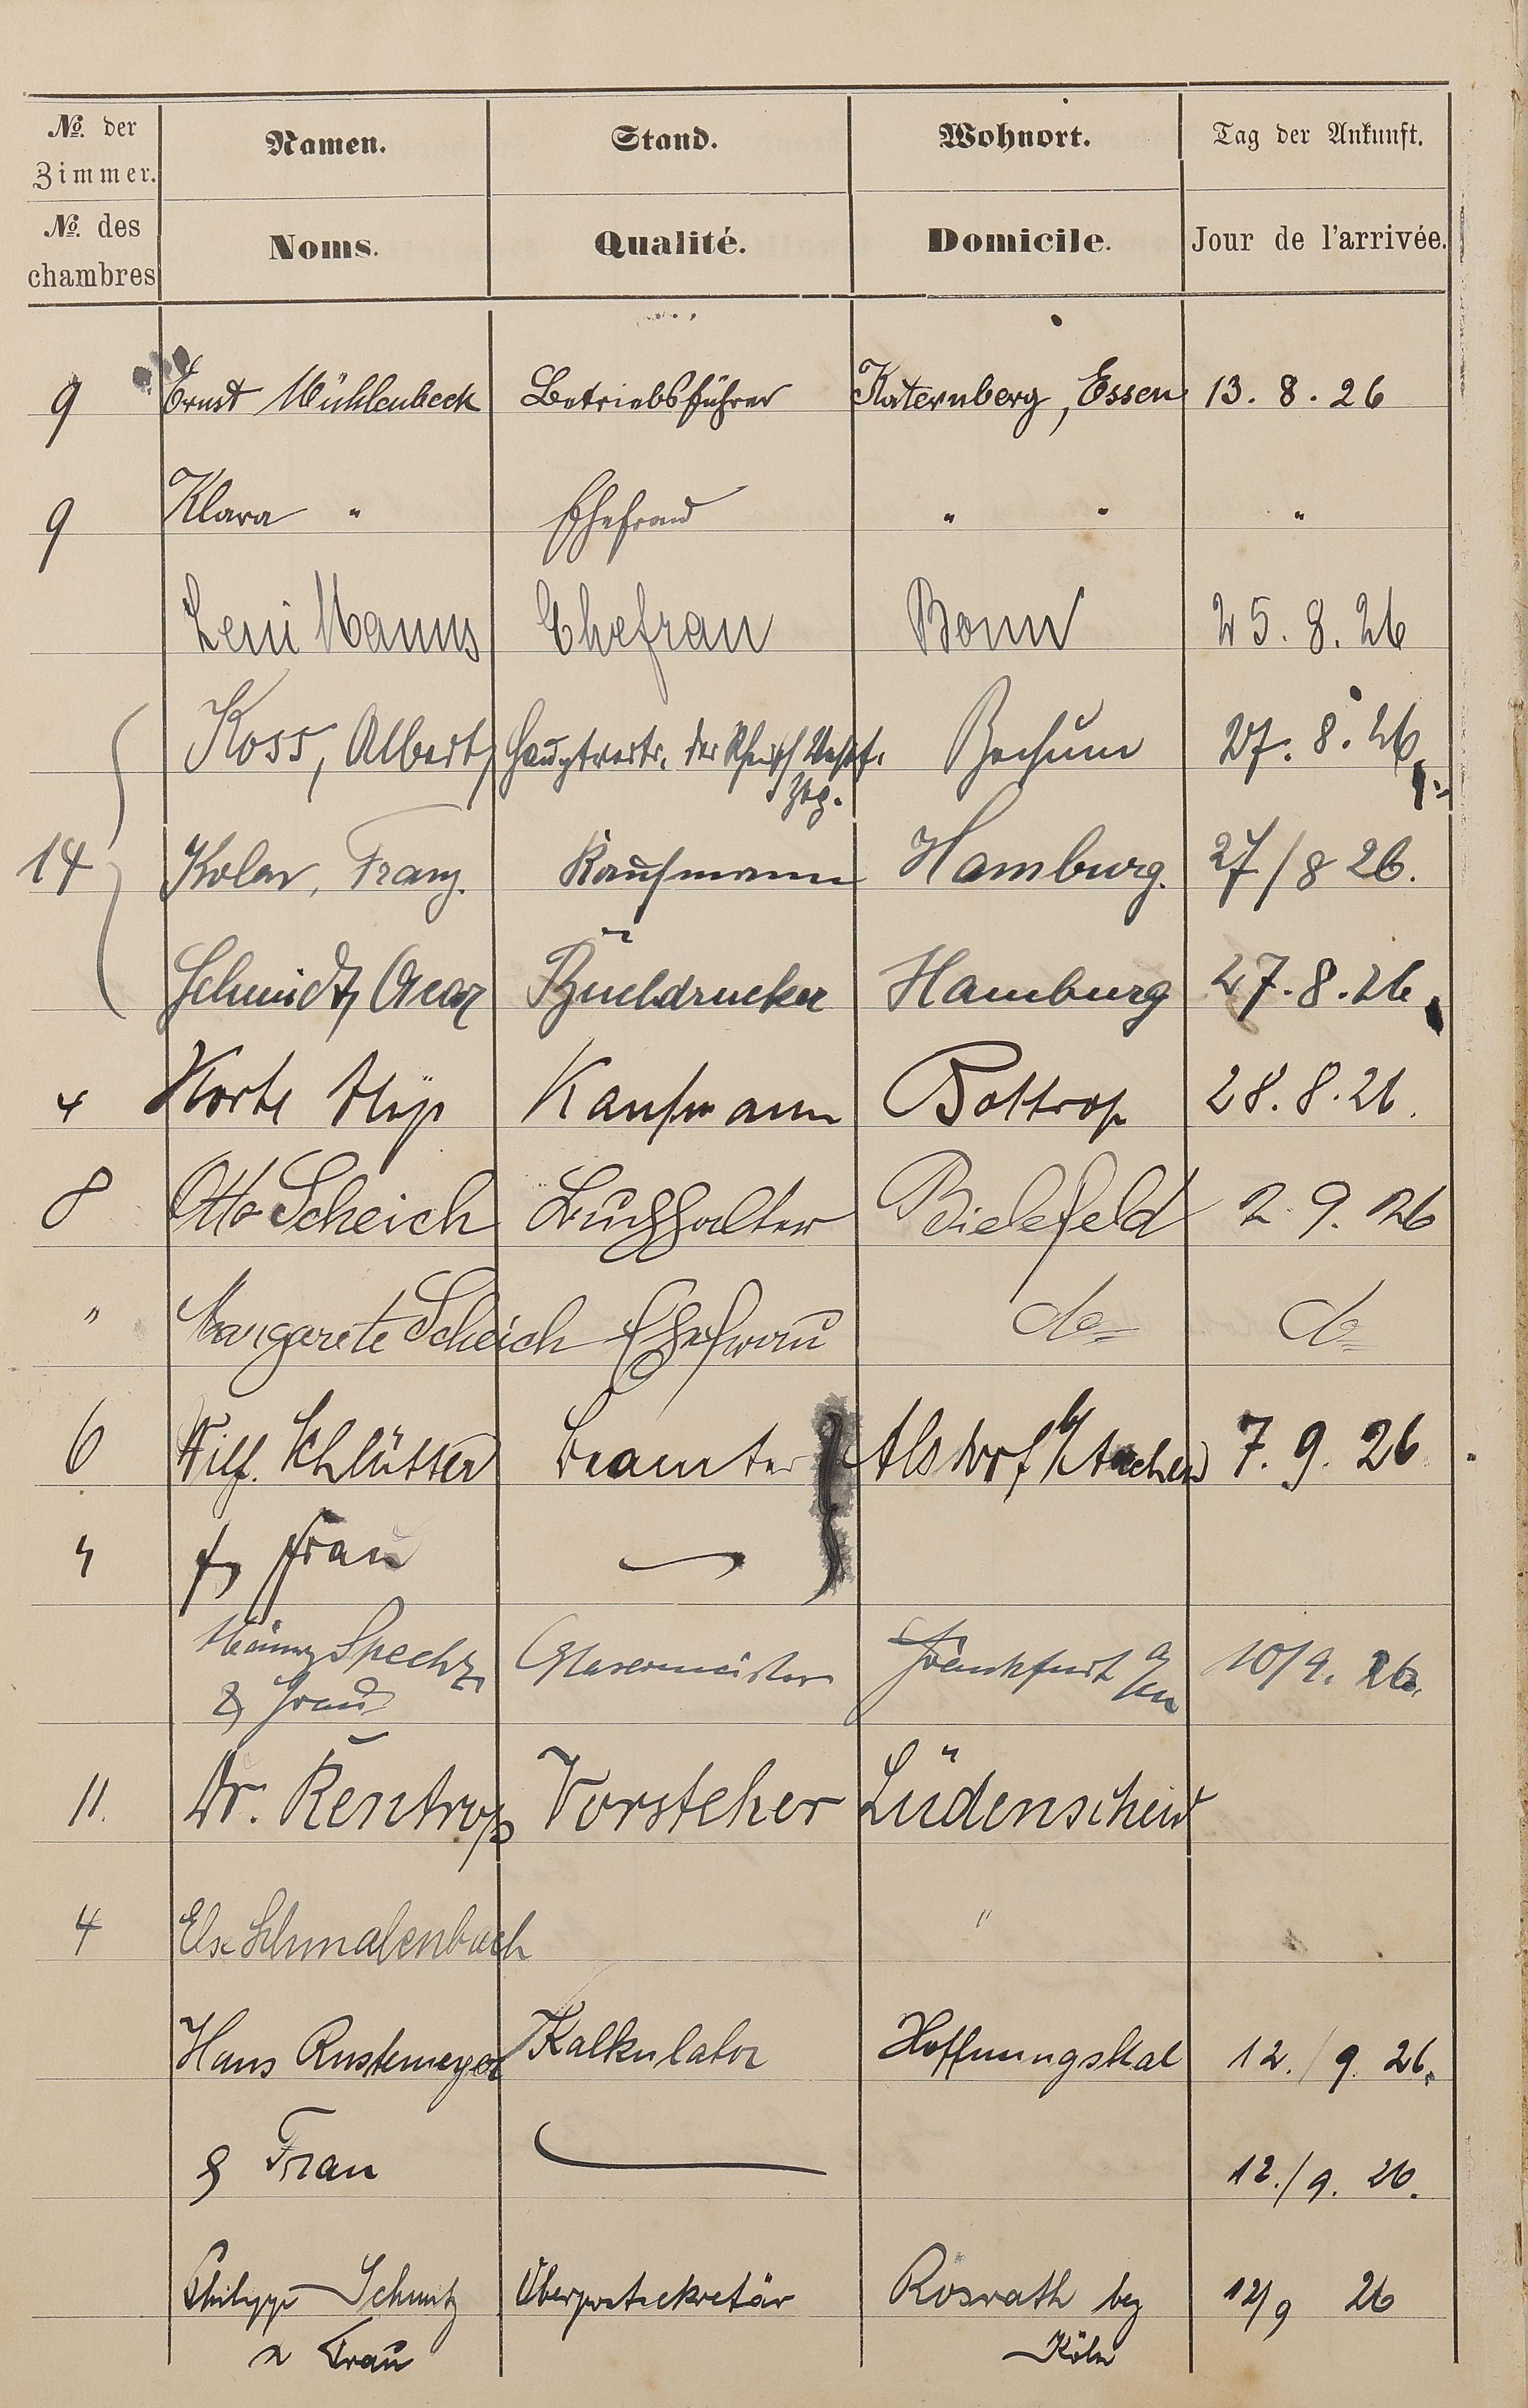 № der Zimmer. Namen. Stand. Wohnort. Tag der Ankunft.
№ des chambres Noms. Qualité. Domicile. Jour de l'arrivée.
9 Ernst Mühlenbeck Betriebsführer Katernberg, Essen 13. 8. 26
9 Klara " Ehefrau " " "
Leni Manns Ehefrau Bonn 25. 8. 26
Koss, Albert, Hauptvertr. der Rheinisch Westf. Bochum 27. 8. 26
Ztg.
14 Franz Kaufmann Hamburg. 27/8 26.
Schmidt, Buchdrucker Hamburg 27. 8. 26
4 Korte Kaufmann Bottrop 28. 8. 26.
8 Otto Scheich Buchhalter Bielefeld 2. 9. 26
" Margarete Scheich Ehefrau do= do=
6 Wilh. Schlütter Beamter } Alsdorf b/ Aachen 7. 9. 26
" Frau —
Specht Glasermeister Frankfurt a/M 10/9. 26.
& Frau
11. Dr. Rentrop Vorsteher Lüdenscheid
4 Else Schmalenbach "
Hans Rustemeyer Kalkulator Hoffnungstal 12./9. 26.
& Frau — 12./9. 26.
Philipp Schmitz Oberpostsekretär Rösrath bey 12/9 26
Frau Köln